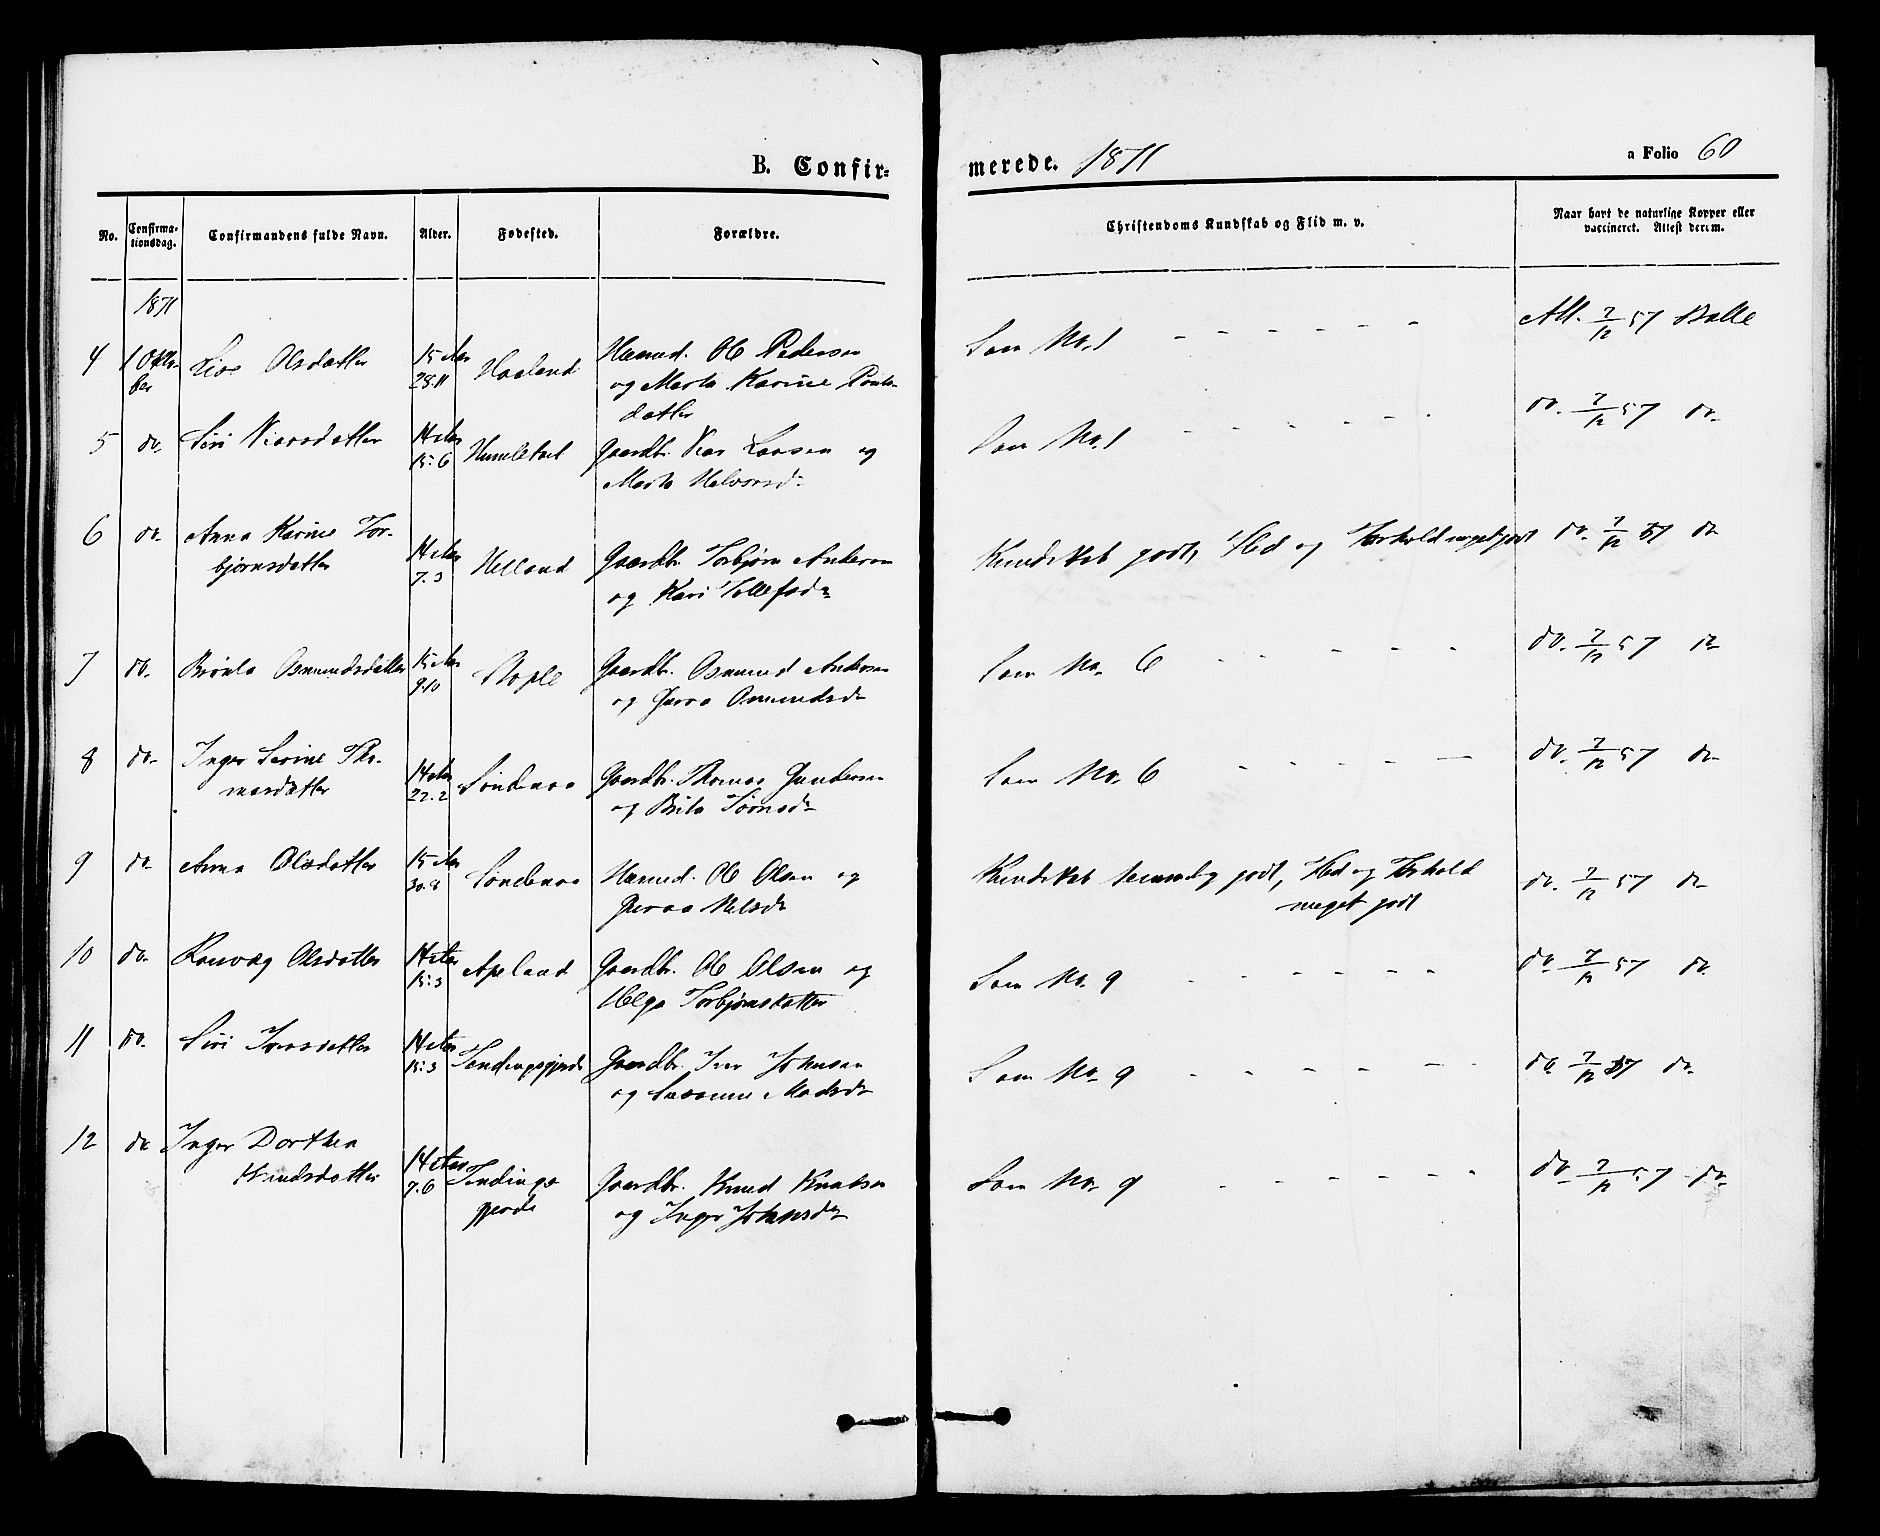 B. Confir-
merede. 1871
a Folio 60
No. Confirma-tionsdag. Confirmandens fulde Navn. Alder. Fødested. Forældre. Christendoms Kundskab og Flid m. v. Naar havt de naturlige Kopper eller vaccineret. Attest derom.
1871
4 1 Okto-ber Olsdatter 15 Aar 28.11 Haaland Huusmd. Ol Pedersen
og Marta Karine
datter
Som No. 1 - - - - - - Att. 7/12 57 Balle
5 do. Siri 14 Aar 15.6 Gaardbr. Larsen og
Marta Halvorsd.
Som No. 1 - - - - - - do. 7/12 57 do.
6 do. Anna Karine Tor-
bjørnsdatter 14 Aar 7.3 Helland Gaardbr. Torbjørn Andersen
og Kari Tollefsd.
Kundskab godt, Flid og Forhold meget godt do. 7/12 57 do.
7 do. Osmundsdatter 15 Aar 9.10 Stople Gaardbr. Osmund Andersen
og Osmundsd.
Som No. 6 - - - - - - do. 7/12 57 do.
8 do. Inger Serine Tho-
masdatter 14 Aar 22.2 Søndenaa Gaardbr. Thomas Gundersen
og Brita
Som No. 6 - - - - - do. 7/12 57 do.
9 do. Anna Olsdatter 15 Aar 30.8 Søndenaa Huusmd. Ol Olsen og
Nelsd.
Kundskab temmelig godt, Flid og Forhold
meget godt do. 7/12 57 do.
10 do. Olsdatter 14 Aar 15.3 Apeland Gaardbr. Ol Olsen og
Helga Torbjørnsdatter
Som No. 9 - - - - - - do 7/12 57 do.
11 do. Siri Iversdatter 14 Aar 15.3 Gaardbr. Iver Johnsen
og Susanne Madsd.
Som No. 9 - - - - - - do 7/12 57 do.
12 do Inger Dorthea
Knudsdatter 14 Aar 7.6 Gaardbr. Knud Knutsen
og Inger Johnsd.
Som No. 9 - - - - - - do. 7/12 57 - do.